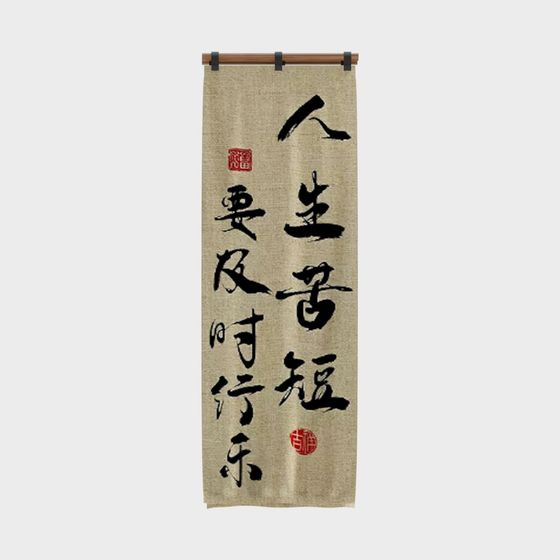 人生苦短
要及时行乐